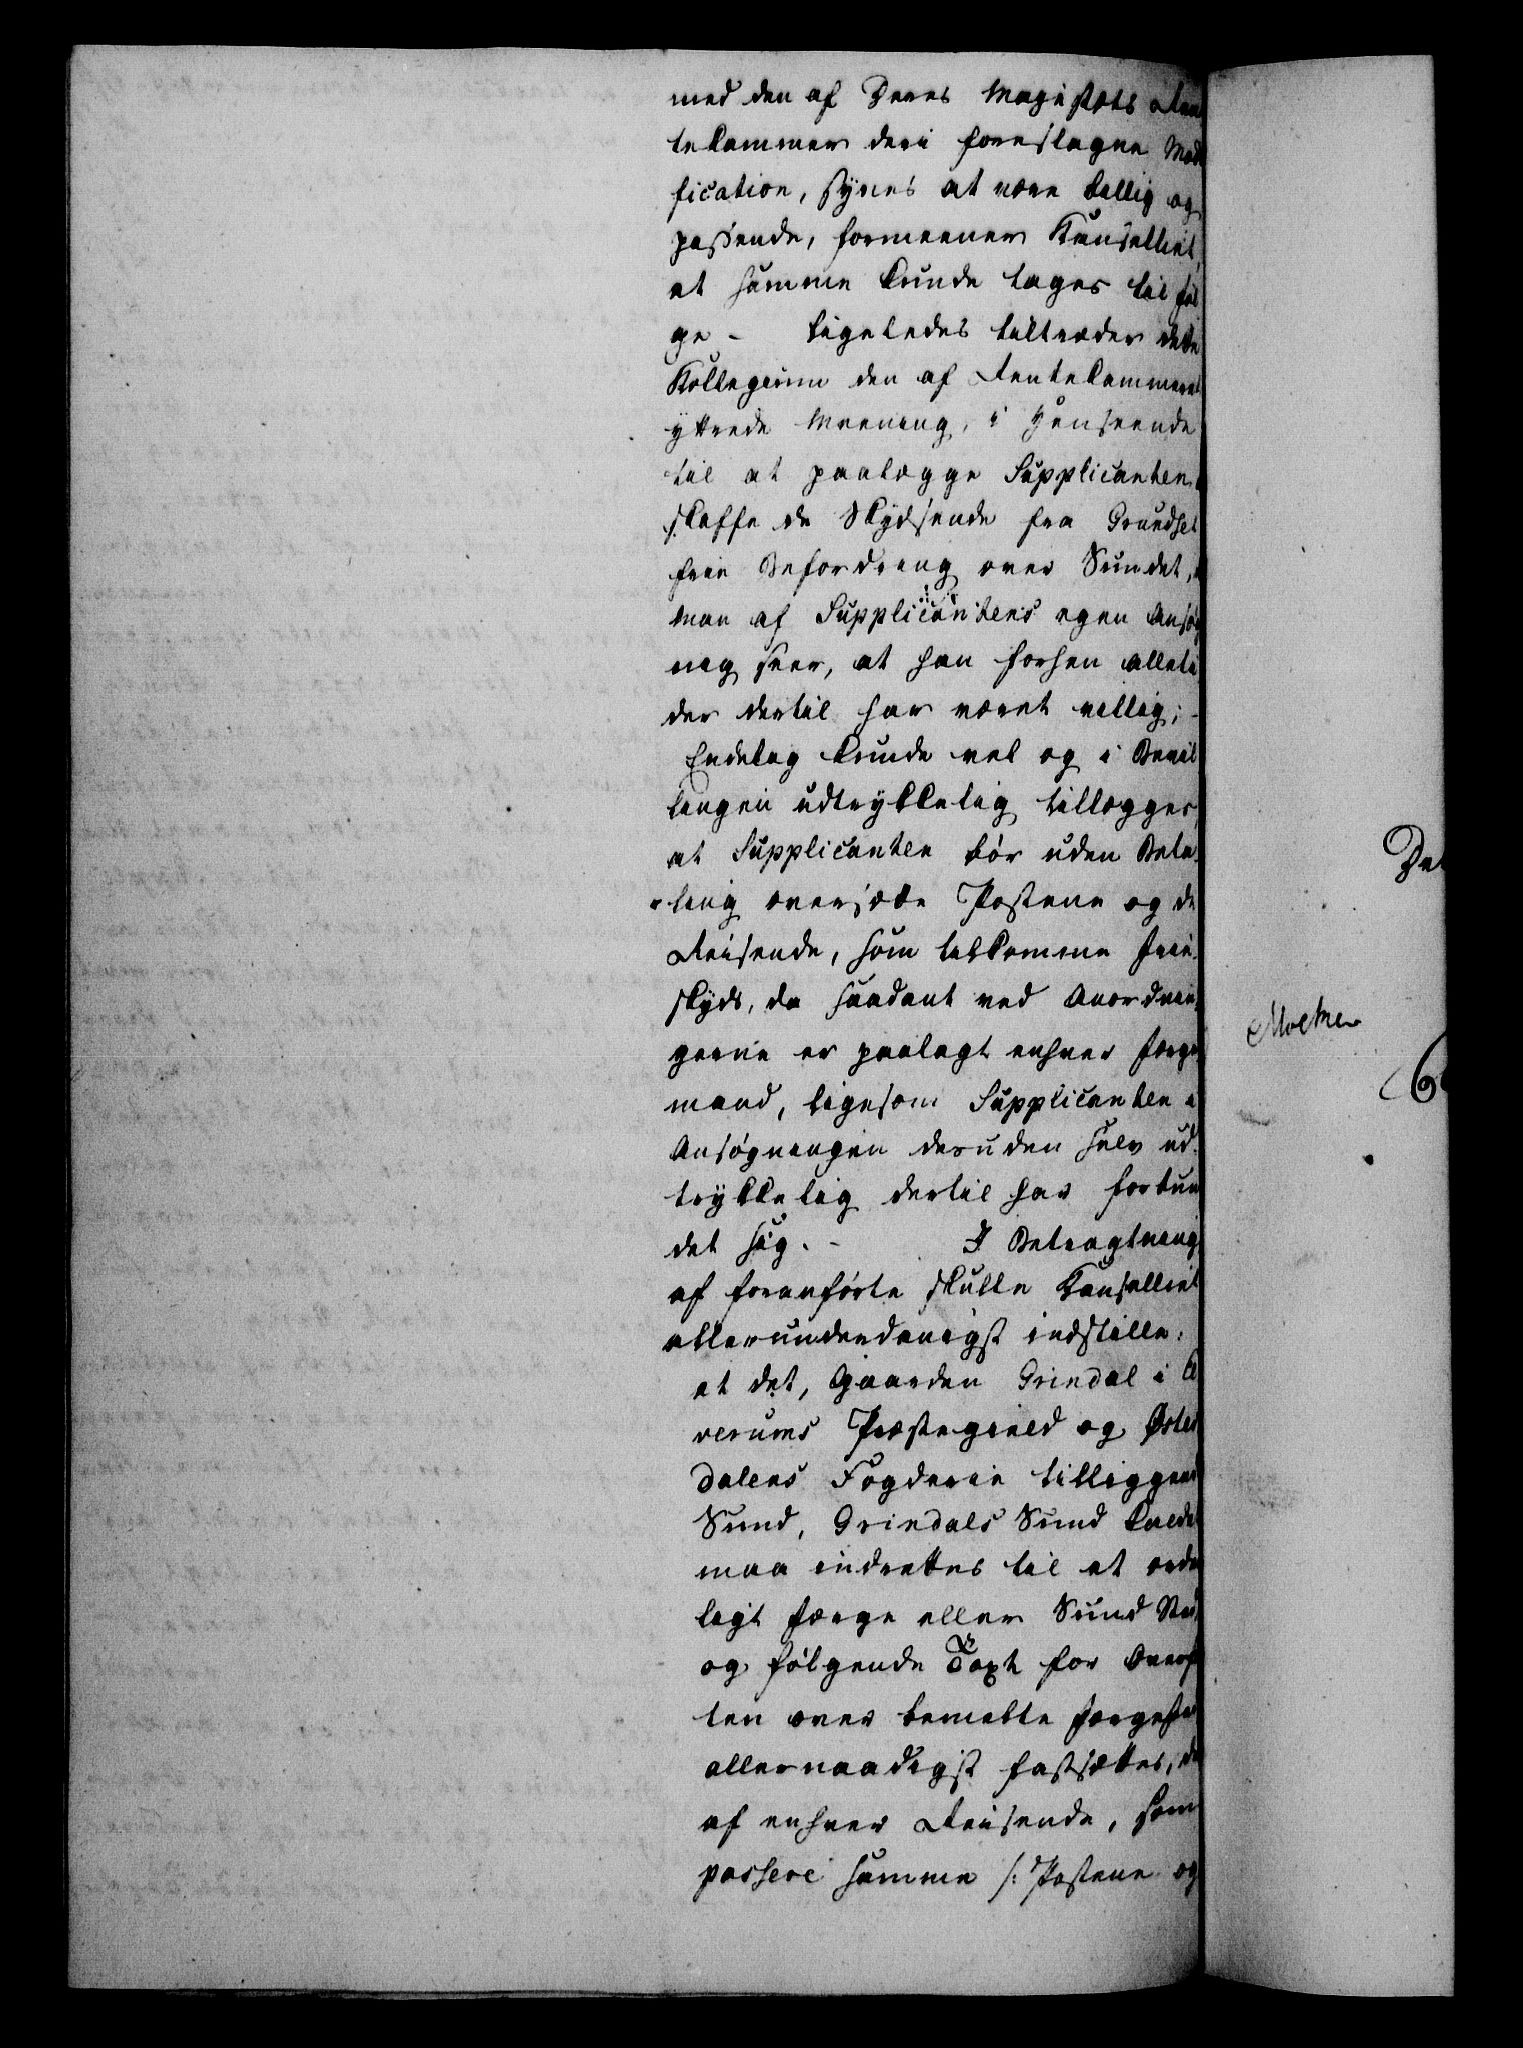 med den af Deres Majestæts Ren
tekammer deri foreslagne Modi
fication, synes at være billig og
passende, formeener Kanselliet,
at samme kunde tages til føl
ge - Ligeledes tiltræder dette
Kollegium den af Rentekammeret
yttrede Meening, i Henseende
til at paalægge Supplicanten
skaffe de Skydsende fra Grundset
frie Befordring over Sundet,
man af Supplicantens egen Ansøg
ning seer, at han forhen alleti
der dertil har været villig; -
Endelig kunde vel og i Bevil
lingen udtrykkelig tillægges,
at Supplicanten bør uden Beta-
ling oversætte Postene og de
Reisende, som tilkomme frie
skyds, da saadant ved Anordnin
gerne er paalagt enhver Færge
mand, ligesom Supplicanten i
Ansøgningen desuden selv ud-
trykkelig dertil har forbun
det sig. - I Betragtning
af foranførte skulle Kanselliet
allerunderdanigst indstille:
at det, Gaarden Grindal i El
verums Præstegield og Øster
dalens Fogderie tilliggende
Sund, Grindals Sund kaldet
maa indrettes til et orde
ligt Færge eller Sund Sted
og følgende Taxt for Overfar
ten over bemelte Færgested
allernaadigst fastsættes, at
af enhver Reisende, som
passere samme /: Postene og
Det
Moltke
6